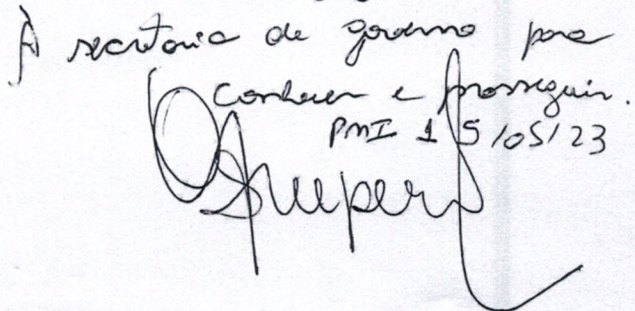 À secretaria de governo para
conhecer e prosseguir.
PMI 15/05/23